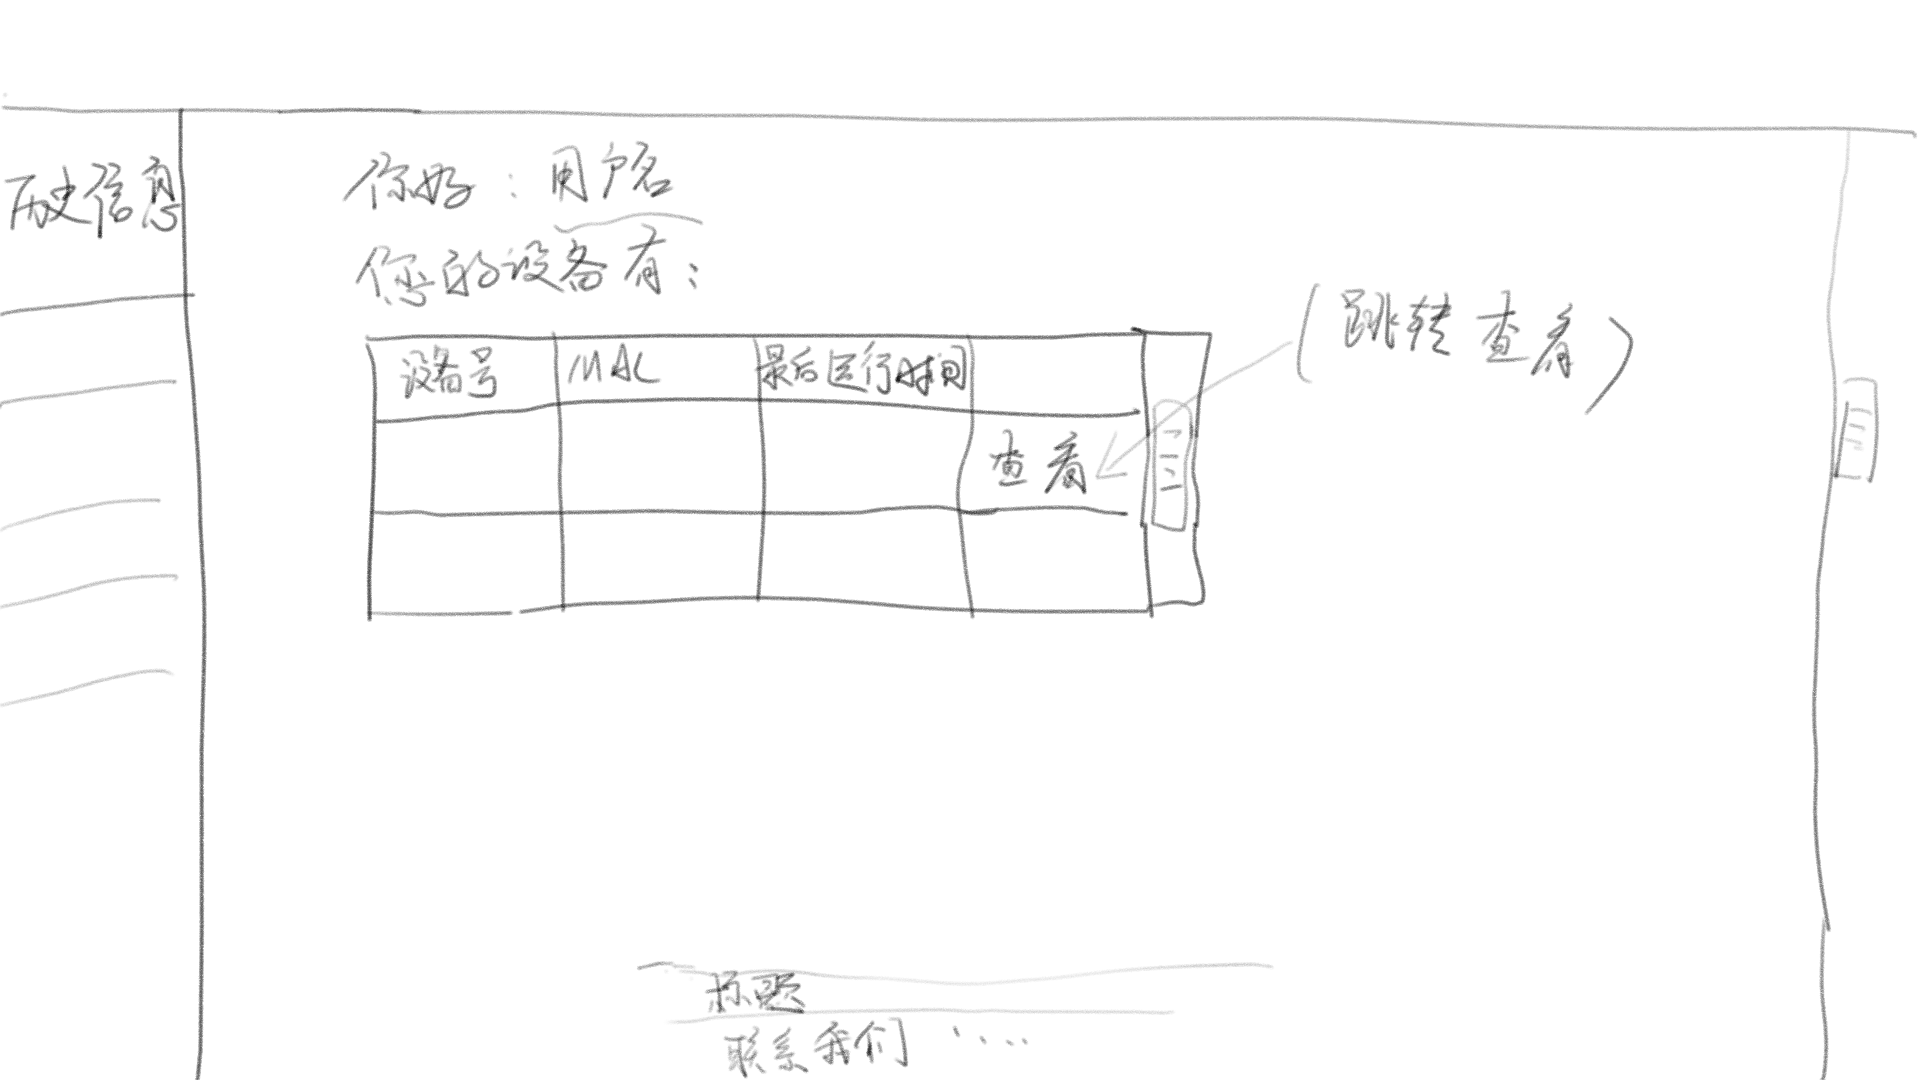 历史信息
你好：用户名
您的设备有：
设备号 MAC 最后运行时间
查看
（跳转查看）
标题
联系我们 ·····